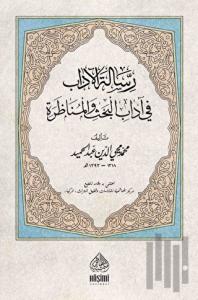 رسالة الآداب
في آداب البحث والمناظرة
تأليف
محمد محيي الدين عبد الحميد
١٣١٨ - ١٣٩٣ هـ
HAŞİMİ